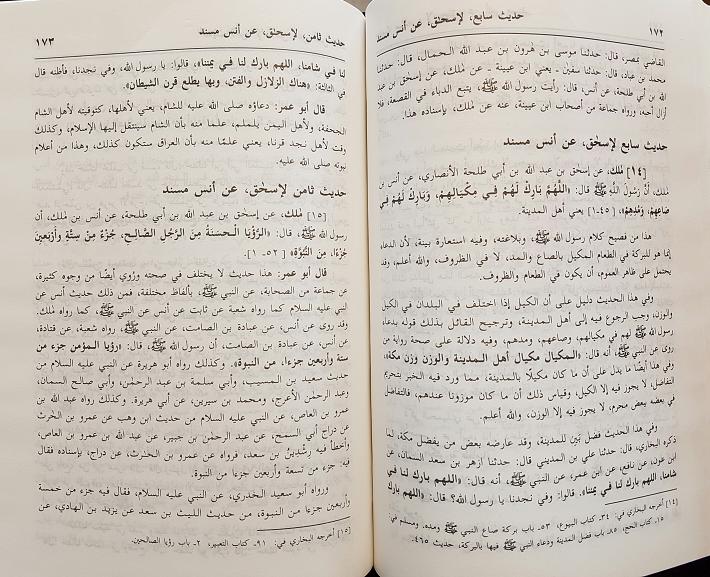 ١٧٢
حديث سابع، لإسحٰق، عن أنس مسند
القاضي بمصر، قال: حدثنا موسى بن هٰرون بن عبد الله الحمال، قال: حدثنا
محمد بن عباد، قال: حدثنا سفيٰن ـ يعني ابن عيينة ـ عن مٰلك، عن إسحٰق بن عبد
الله بن أبي طلحة، عن أنس، قال: رأيت رسول الله ﷺ، يتبع الدباء في القصعة، فلا
أزال أحبه، ورواه جماعة من أصحاب ابن عيينة، عنه عن مٰلك، بإسناده هذا.
حديث سابع لإسحٰق، عن أنس مسند
[١٤] مٰلك، عن إسحٰق بن عبد الله بن أبي طلحة الأنصاري، عن أنس بن
مٰلك، أنَّ رَسُولَ اللَّهِ ﷺ قال: «اللَّهُمَّ بَارِكْ لَهُمْ فِي مِكْيَالِهِمْ، وَبَارِكْ لَهُمْ فِي
صَاعِهِمْ، وَمُدِّهِمْ»، [٤٥-١] يعني أهل المدينة.
هذا من فصيح كلام رسول الله ﷺ، وبلاغته، وفيه استعارة بينة، لأن الدعاء
إنما هو للبركة في الطعام المكيل بالصاع والمد، لا في الظروف، والله أعلم، وقد
يحتمل على ظاهر العموم، أن يكون في الطعام والظروف.
وفي هذا الحديث دليل على أن الكيل إذا اختلف في البلدان في الكيل
والوزن، وجب الرجوع فيه إلى أهل المدينة، وترجيح القائل بذلك قوله بدعاء
رسول الله ﷺ لهم في مكيالهم، وصاعهم، ومدهم، وفيه دلالة على صحة رواية من
روى عن النبي ﷺ، أنه قال: «المكيال مكيال أهل المدينة والوزن وزن مكة»،
وفي هذا أيضًا ما يدل على أن ما كان مكيلًا بالمدينة، مما ورد فيه الخبر بتحريم
التفاضل، لا يجوز فيه إلا الكيل، وقياس ذلك أن ما كان موزونًا عندهم، فالتفاضل
في بعضه ببعض محرم، لا يجوز فيه إلا الوزن، والله أعلم.
وفي هذا الحديث فضل بَيِّن للمدينة، وقد عارضه بعض من يفضل مكة، لما
ذكره البخاري، قال: حدثنا علي بن المديني قال: حدثنا أزهر بن سعد السمان، عن
ابن عون، عن نافع، عن ابن عمر، عن النبي ﷺ، أنه قال: «اللهم بارك لنا في
شامنا، اللهم بارك لنا في يمننا». قالوا: وفي نجدنا يا رسول الله؟ قال: «اللهم بارك
[١٤] أخرجه البخاري في: ٣٤- كتاب البيوع، ٥٣- باب بركة صاع النبي ﷺ ومده، ومسلم في
١٥- كتاب الحج، ٨٥- باب فضل المدينة ودعاء النبي ﷺ فيها بالبركة، حديث ٤٦٥.
حديث ثامن، لإسحٰق، عن أنس مسند
١٧٣
لنا في شامنا، اللهم بارك لنا في يمننا»، قالوا: يا رسول الله، وفي نجدنا، فأظنه قال
في الثالثة: «هناك الزلازل والفتن، وبها يطلع قرن الشيطان».
قال أبو عمر: دعاؤه صلى الله عليه للشام، يعني لأهلها، كتوقيته لأهل الشام
الجحفة، ولأهل اليمن يلملم، علما منه بأن الشام سينتقل إليها الإسلام، وكذلك
وقت لأهل نجد قرنا، يعني علمًا منه بأن العراق ستكون كذلك، وهذا من أعلام
نبوته صلى الله عليه.
حديث ثامن لإسحٰق، عن أنس مسند
[١٥] مٰلك، عن إسحٰق بن عبد الله بن أبي طلحة، عن أنس بن مٰلك، أن
رسول الله ﷺ، قال: «الرُّؤْيَا الْحَسَنَةُ مِنَ الرَّجُلِ الصَّالِحِ، جُزْءٌ مِنْ سِتَّةٍ وَأَرْبَعِينَ
جُزْءًا، مِنَ النُّبُوَّةِ» [٥٢- ١].
قال أبو عمر: هذا حديث لا يختلف في صحته ورُوِي أيضًا من وجوه كثيرة،
عن جماعة من الصحابة، عن النبي ﷺ، بألفاظ مختلفة، فمن ذلك حديث أنس عن
النبي عليه السلام كما رواه شعبة عن ثابت عن أنس عن النبي ﷺ، كما رواه مٰلك.
وقد روى عن أنس، عن عبادة بن الصامت، عن النبي ﷺ، رواه شعبة، عن قتادة،
عن أنس، عن عبادة بن الصامت، أن رسول الله ﷺ، قال: «رؤيا المؤمن جزء من
ستة وأربعين جزءا، من النبوة». وكذلك رواه أبو هريرة عن النبي عليه السلام من
حديث سعيد بن المسيب، وأبي سلمة بن عبد الرحمٰن، وأبي صالح السمان،
وعبد الرحمٰن الأعرج، ومحمد بن سيرين، عن أبي هريرة. وكذلك رواه عبد الله بن
عمرو بن العاص، عن النبي عليه السلام من حديث ابن وهب عن عمرو بن الحٰرث
عن دراج أبي السمح، عن عبد الرحمٰن بن جبير، عن عبد الله بن عمرو بن العاص،
وأخطأ فيه رِشْدِينُ بن سعد، فرواه عن عمرو بن الحٰرث، عن دراج، بإسناده فقال
فيه: جزء من تسعة وأربعين جزءا من النبوة.
ورواه أبو سعيد الخدري، عن النبي عليه السلام، فقال فيه جزء من خمسة
وأربعين جزءا من النبوة، من حديث الليث بن سعد عن يزيد بن الهادي، عن
[١٥] أخرجه البخاري في: ٩١- كتاب التعبير، ٢- باب رؤيا الصالحين.